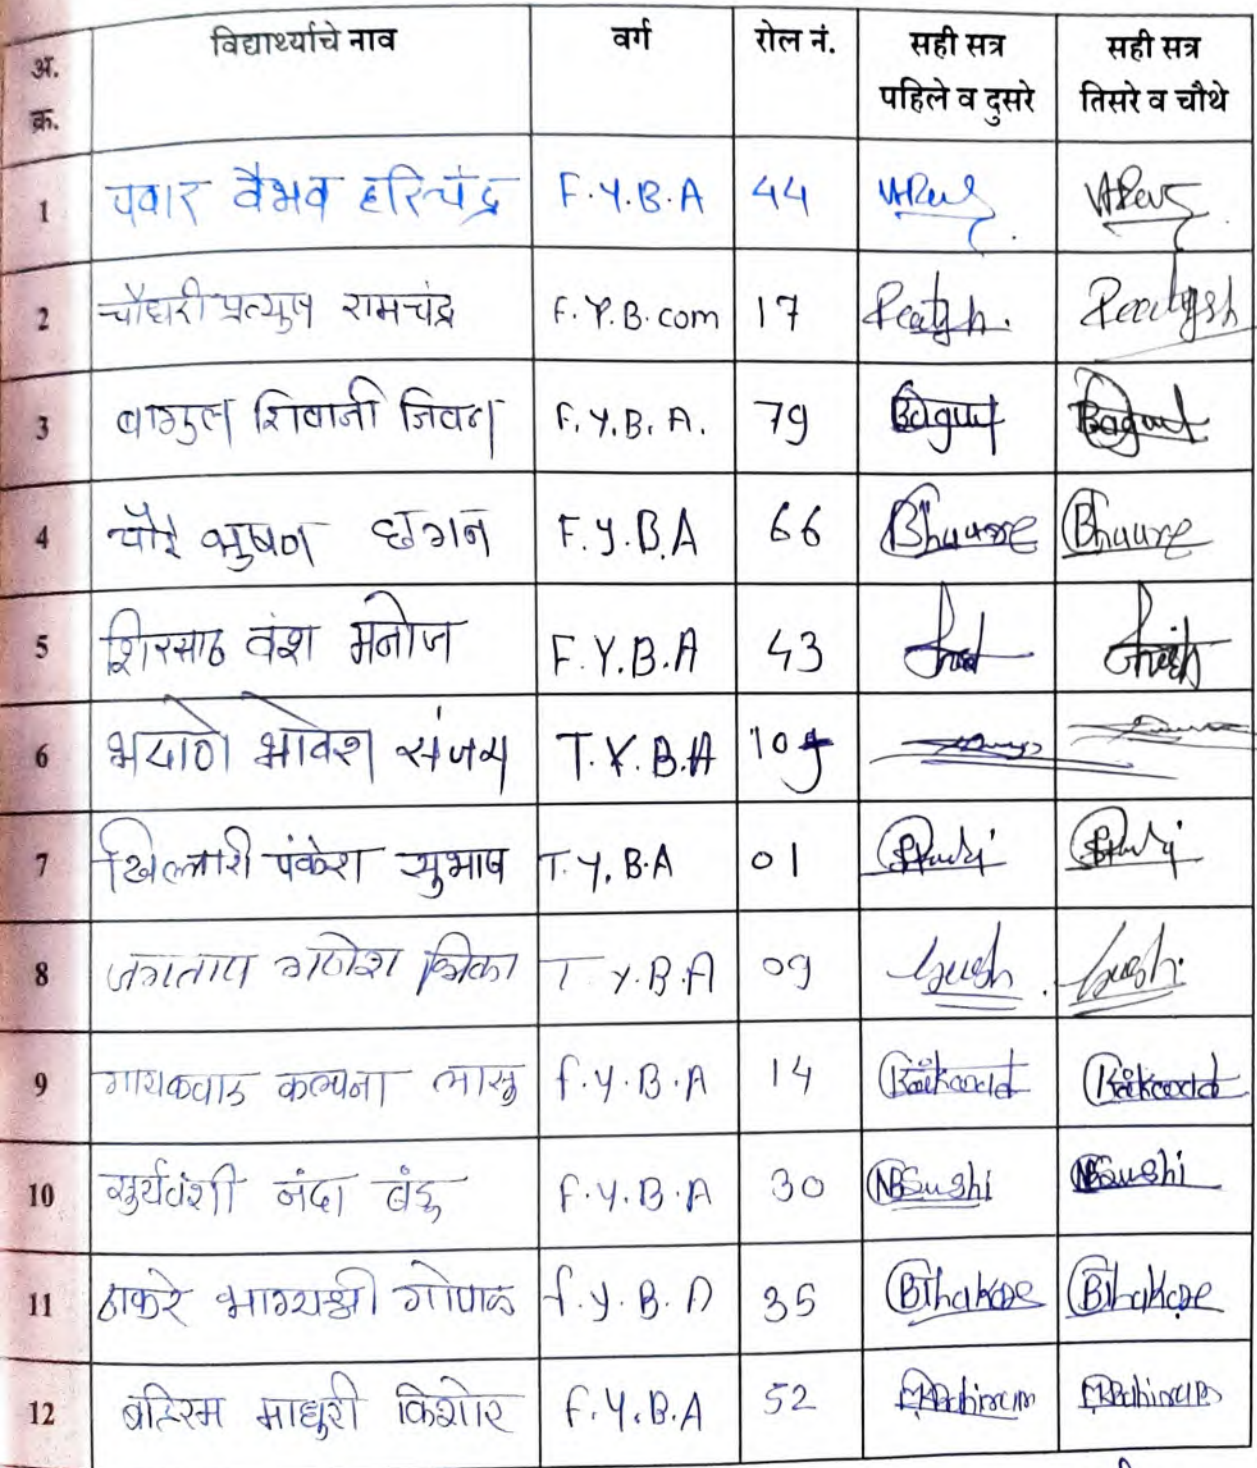 अ. क्र. विद्यार्थ्याचे नाव वर्ग रोल नं. सही सत्र पहिले व दुसरे सही सत्र तिसरे व चौथे
1 पवार वैभव हरिचंद्र F.Y.B.A 44
2 चौधरी प्रत्युष रामचंद्र F.Y.B.com 17
3 बागुल शिवाजी जिवन F.Y.B.A. 79 Bagul Bagul
4 चौरे भुषण छगन F.Y.B.A 66
5 शिरसाठ वंश मनोज F.Y.B.A 43
6 भदाणे भावेश संजय T.Y.B.A
7 खिल्लारी पंकेश सुभाष T.Y.B.A 01
8 जगताप गणेश भिका T.Y.B.A 09
9 गायकवाड कल्पना लासु F.Y.B.A 14
10 सुर्यवंशी नंदा बंडू F.Y.B.A 30
11 ठाकरे भाग्यश्री गोपाळ F.Y.B.A 35 BThakare BThakare
12 बहिरम माधुरी किशोर F.Y.B.A 52 MKBahiram MKBahiram